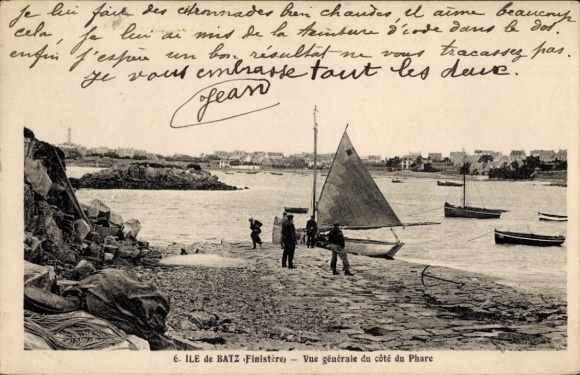 je lui fait des citronnades bien chaudes, il aime beaucoup
cela, je lui ai mis de la teinture d'iode dans le dos.
enfin j'espère un bon résultat ne vous tracassez pas.
Je vous embrasse tout les deux.
Jean
6. ILE de BATZ (Finistère) – Vue générale du côté du Phare